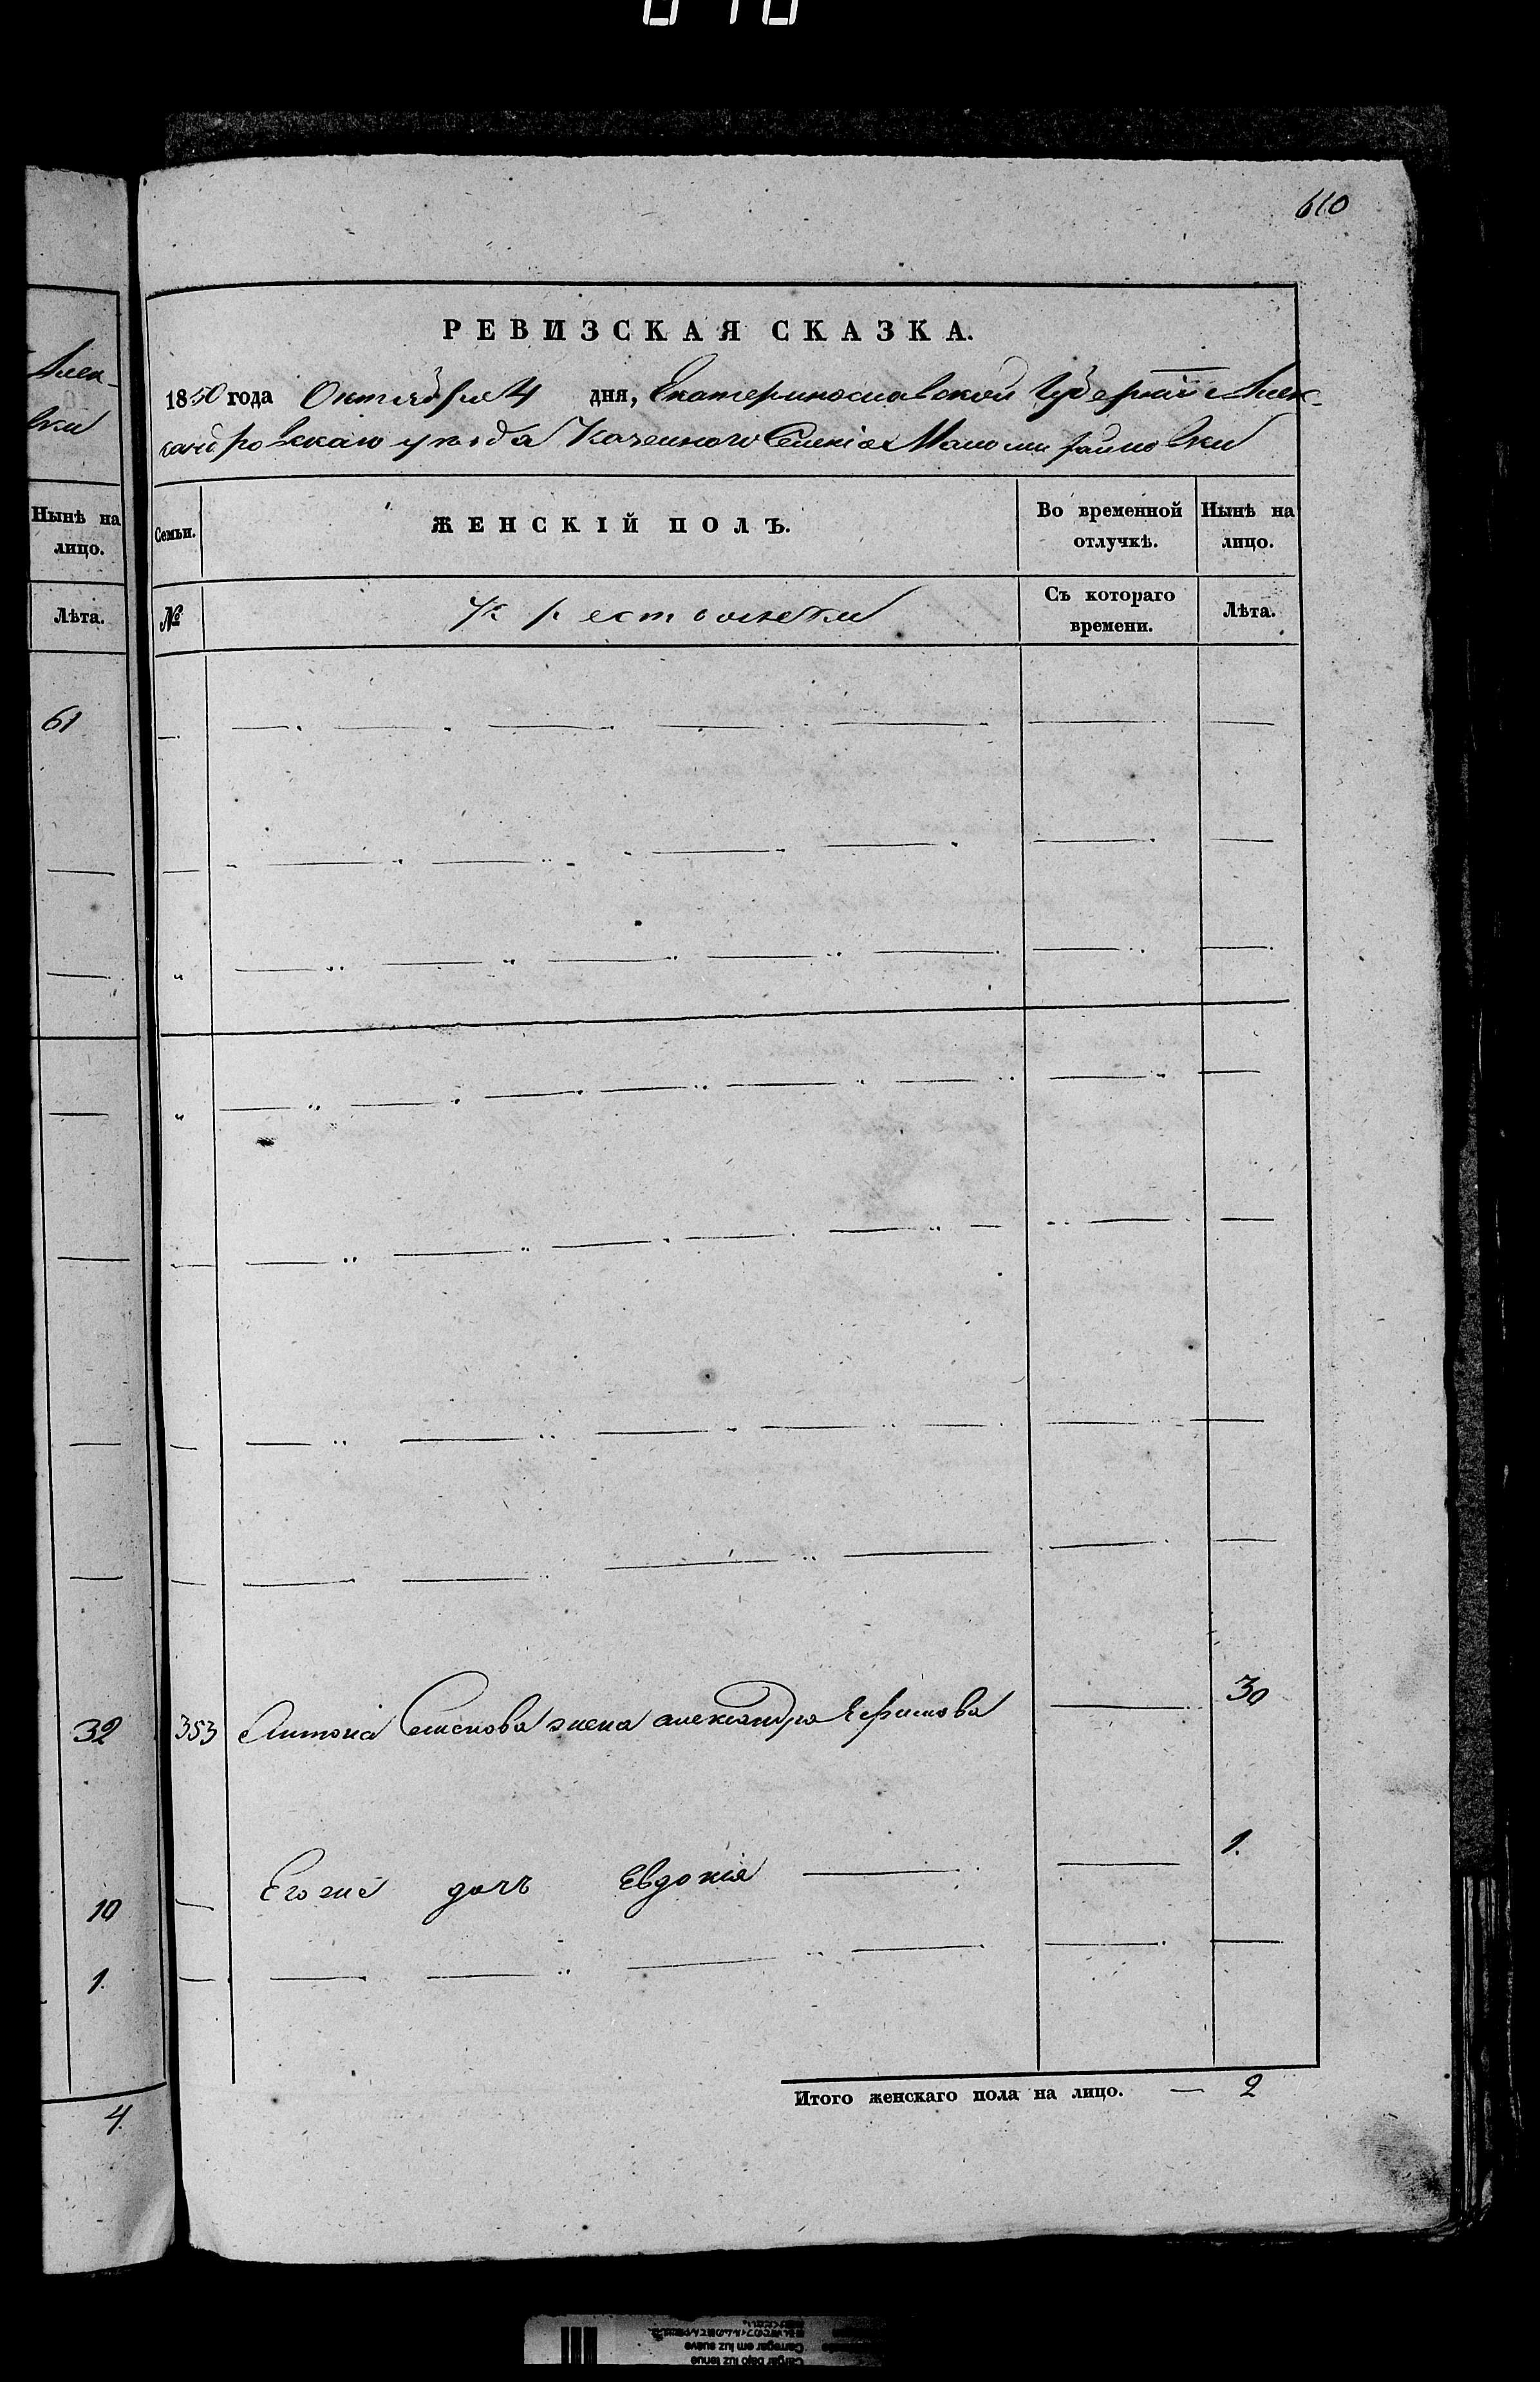 610
Алек-
вки
Нынѣ на
лицо.
Лѣта.
61
32
10
1.
4.
РЕВИЗСКАЯ СКАЗКА.
1850 года Октября 4 дня, Екатеринославской Губерніи Алек-
сандровскаго уѣзда Казенного Селенія
Семьи.
ЖЕНСКІЙ ПОЛЪ.
Во временной
отлучкѣ.
Нынѣ на
лицо.
№
Крестьянки
Съ котораго
времени.
Лѣта.
353 Семенова жена александра Ефимова 30
Его же дочь Евдокія 1.
Итого женскаго пола на лицо. — 2